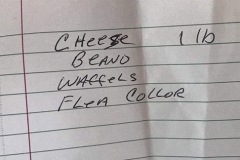 CHEESE 1 lb
BEANO
WAFFELS
FLEA COLLOR